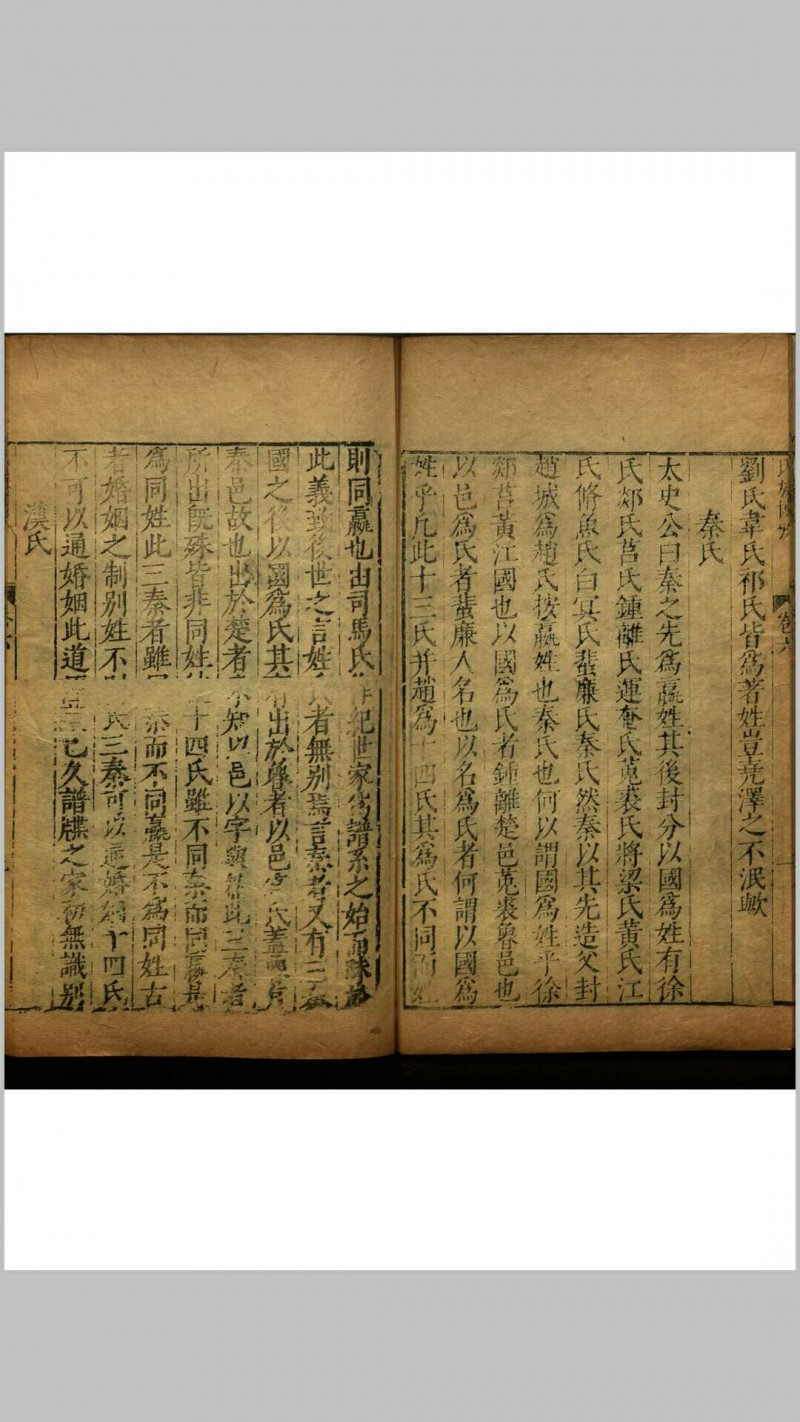 劉氏韋氏祁氏皆爲著姓豈堯澤之不泯歟
秦氏
太史公曰秦之先爲嬴姓其後封分以國爲姓有徐
氏郯氏莒氏鍾離氏運奄氏菟裘氏將梁氏黃氏江
氏脩魚氏白冥氏蜚廉氏秦氏然秦以其先造父封
趙城爲趙氏按嬴姓也秦氏也何以謂國爲姓乎徐
郯莒黃江國也以國爲氏者鍾離楚邑菟裘魯邑也
以邑爲氏者蜚廉人名也以名爲氏者何謂以國爲
姓乎凡此十三氏并趙爲十四氏其爲氏不同而
則同嬴也由司馬氏 紀世家爲譜系之始而昧於
此義致後世之言姓 者無別焉言秦者又有三
國之後以國爲氏其 出於魯者以邑 氏蓋
秦邑故也出於楚者 不知以邑以字與 此三秦者
所出旣殊皆非同姓 十四氏雖不同秦而同嬴是
爲同姓此三秦者雖 秦而不同嬴是不爲同姓古
者婚姻之制别姓不 氏三秦可以通婚姻十四氏
不可以通婚姻此道 已久譜牒之家初無識别
漢氏